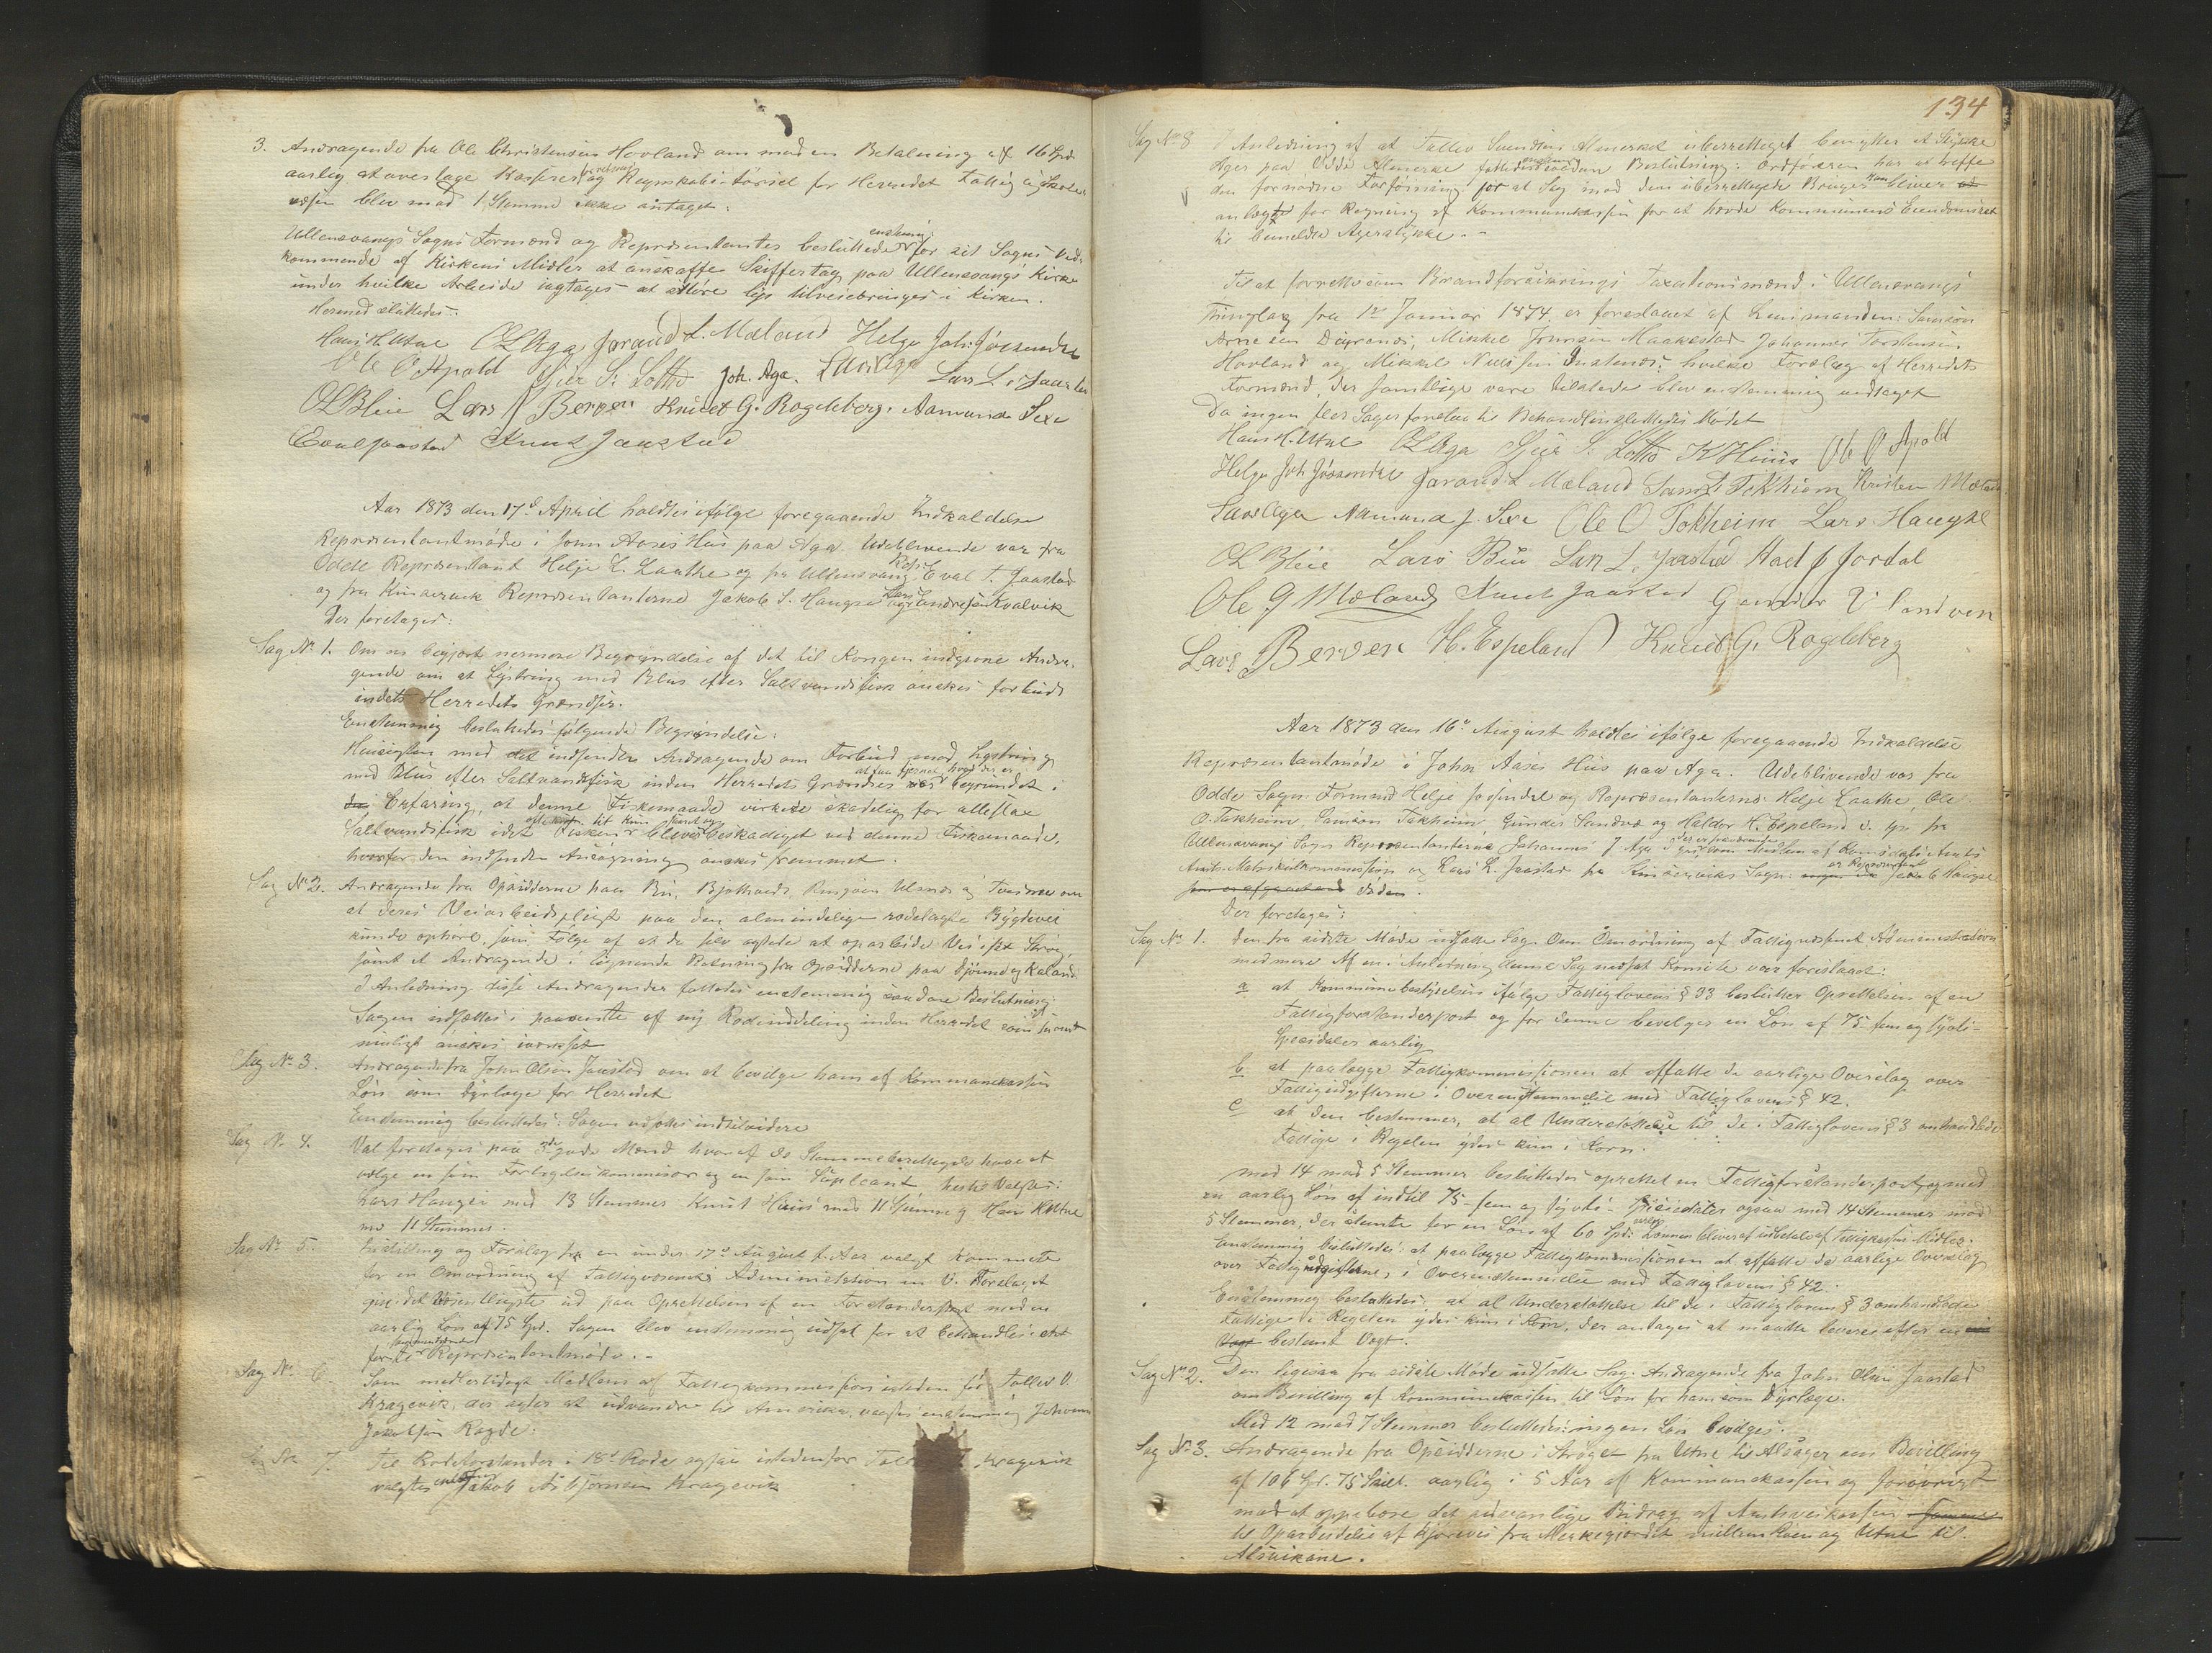 3. Andragende fra Ole Christensen Hovland om mod en Betaling af 16 Spd.
aarlig at overtage Kasserer og Regnskabsførsel for Herredet Fattig og Skole-
væsen blev mod 1 Stemme ikke antaget.
Ullensvangs Sogns Formænd og Repræsentanter besluttede enstemmig for sit Sogns Ved-
kommende af Kirkens Midler at anskaffe Skiffertag paa Ullensvangs Kirke
under hvilke Arbeide iagtages at større lys tilveiebringes i Kirken.
Hermed sluttedes.
Hans H. Utne O L Aga Jorand L. Mæland Helge Joh. Jøssendal
Ole O Apold Sjur S. Lothe Joh. Aga. Lars Aga Lars L. Jaastad
O L Bleie Lars Berven Knud G. Rogdeberg. Aamund Sexe
Eval Jaastad Knut Jaastad
Aar 1873 den 17de April holdtes ifølge foregaaende Indkaldelse
Repræsentantmøde i John Aases Hus paa Aga. Udeblivende var fra
Odde Repræsentant Helje L. Laathe og fra Ullensvang Rep. Eval T. Jaastad
og fra Kinservik Repræsentanterne Jakob S. Haugse og Lars Endresen Kvalvik
Der foretages:
Sag No 1. Om en begjært nærmere Begrundelse af det til Kongen indgivne Andra-
gende om at Lystring med Blus efter Saltvandsfisk ønskes forbudt
indets Herredets Grændser.
Enstemmig besluttedes følgende Begrundelse:
Hensigten med det indsendte Andragende om Forbud mod Lystring
med Blus efter Saltvandsfisk inden Herredets Grændser at faa fjernet, hvad der er begrundet i
Erfaring, at denne Fiskemaade virker skadelig for alleslae
Saltvandsfisk idet Fisken bliver beskadiget ved denne Fiskemaade,
hvorfor den indsendte Ansøgning ønskes fremmet.
Sag No 2. Andragende fra Opsidderne paa Bu, Bjotveit, Ringøen Ulands og Tveisme om
at deres Veiarbeidspligt paa den almindelige rodelagte Bygdevei
kunde ophøre, som Følge af at de selv agtede at oparbeide Vei
samt et Andragende i lignende Retning fra Opsidderne paa Djønne og Kaland.
I Anledning disse Andragender fattedes enstemmig saadan Beslutning:
Sagen udsættes i paavente af ny Rodeinddeling inden Herredet som snart
muligt ønskes iværksat
Sag No 3. Andragende fra John Olsen Jaastad om at bevilge ham af Kommunekassen
Løn som Dyrlæge for Herredet
Enstemmig besluttedes: Sagen udsættes indtilvidere
Sag No 4. Val foretages paa 3de gode Mænd hvoraf de Stemmeberettigede have at
vælge en som Forligelseskommissær og en som Supleant hertil Valgtes:
Lars Haugse med 13 Stemmer Knut Huus med 11 Stemmer og Hans H Utne
med 11 Stemmer.
Sag No 5. Indstilling og Forslag fra en under 17de August f. Aar valgt Kommite
for en Omordning af Fattigvæsenets Administration m. v. Forslaget
gik det væsentligste ud paa Oprettelsen af en Forstanderpost med en
aarlig Løn af 75 Spd. Sagen blev enstemmig udsat for at behandles i det
første Repræsentantmøde. -
Sag No 6. Som midlertidigt Medlem af Fattigkommissionen istedenfor Tollev O.
Kragevik, der agter at udvandre til Amerika, valgtes enstemmig Johannes
Jakobsen Ragde.
7. Til Rodeforstander i 18de Rode ogsaa istedenfor Kragevik
valgtes enstemmig Jakob Asbjørnsen Kragevik
134
Sag No 8 I Anledning af at Tollev Svendsen Almerket uberettiget benytter et Stykke
Ager paa Odde Almerke fattedes enstemmig saadan Beslutning: Ordføreren har at træffe
den fornødne Forføining for at Sag mod den uberettigede Bruger kan bliver
anlagt for Regning af Kommunekassen for at hævde Kommunens Eiendomsret
til bemeldte Agerstykke. -
Til at forrette som Brandforsikrings Taxationsmænd i Ullensvangs
Tinglag fra 1ste Januar 1874 er foreslaaet af Lensmanden: Samson
Arnesen Digranes, Mikkel Jonsen Maakestad Johannes Torstensen
Hovland og Mikkel Nielsen hvilke Forslag af Herredets
Formænd, der samtlige vare tilstede blev enstemmig vedtaget
Da ingen fleer Sager forelaa til Behandling sluttedes Mødet
Hans H. Utne O L Aga Sjur S. Lothe K Huus Ole O Apold
Helge Joh Jøssendal Jorand L Mæland Sams. L. Tokheim Kristen Mæland
Lars Aga Aamund J. Sexe Ole O Tokheim Lars Haugse
O L Bleie Lars Bu Lars L. Jaastad Hael J Jordal
Ole G Mæland Knut Jaastad Gunder Sandven
Lars Berven H. Espeland Knud G. Rogdeberg
Aar 1873 den 16de August holdtes ifølge foregaaende Indkaldelse
Repræsentantmøde i John Aases Hus paa Aga. Udeblivende var fra
Odde Sogn Formand Helje Jøssendal og Repræsentanterne Helje Laathe, Ole
O. Tokheim Samson Tokheim, Gunder Sandven og Haldor H. Espeland d. y. fra
Ullensvang Sogn Repræsentanterne Johannes J. Aga der er fraværende som Medlem af
Amts Matrikulkommission og Lars L. Jaastad fra Kinserviks Sogn: er Repræsentant Jakob Haugse
som er afgaaet ved Døden.
Der foretages:
Sag No 1. Den fra sidste Møde udsatte Sag: Om Omordning af Fattigvæsenets Administration
med mere Af en i Anledning denne Sag nedsat Komite var foreslaaet:
a at Kommunebestyrelsen ifølge Fattiglovens § 33 beslutter Oprettelsen af en
Fattigforstanderpost og for denne bevilges en Løn af 75 - fem og sytti -
Speciedaler aarlig
b. at paalægge Fattigkommissionen at affatte de aarlige Overslag over
Fattigudgifterne i Overensstemmelse med Fattiglovens § 42.
c at den bestemmer, at al Understøttelse til de i Fattiglovens § 3 omhandlede
Fattige i Regelen ydes kun i Korn.
Med 14 mod 5 Stemmer besluttedes oprettet en Fattigforstanderpost, og med
en aarlig Løn af indtil 75 - fem og sytti - Speciedaler ogsaa med 14 Stemmer mod
5 Stemmer, der stemte for en Løn af 60 Spd. aarlig. Lønnen bliver at udbetale af Fattigkassens Midler.
Enstemmig besluttedes: at paalægge Fattigkommissionen at affatte de aarlige Overslag
over Fattigudgifterne, i Overensstemmelse med Fattiglovens § 42.
Enstemmig besluttedes, at al Understøttelse til de i Fattiglovens § 3 omhandlede
Fattige i Regelen ydes kun i Korn, der antages at maatte leveres efter en
Vægt bestemt Vægt.
Sag No 2. Den ligesaa fra sidste Møde udsatte Sag: Andragende fra John Olsen Jaastad
om Bevilling af Kommunekassen til Løn for ham som Dyrlæge.
Med 12 mod 7 Stemmer besluttedes: ingen Løn bevilges.
Sag No 3. Andragende fra Opsidderne i Strøget fra Utne til Alsager om Bevilling
af 106 Spd. 75 Skill. aarlig i 5 Aar af Kommunekassen og forøvrigt
mod at oppebære det Bidrag af Amtsveikassen
til Oparbeidelse af Kjørevei fra Merkegjerdet mellem og Utne til
Alsvikane.